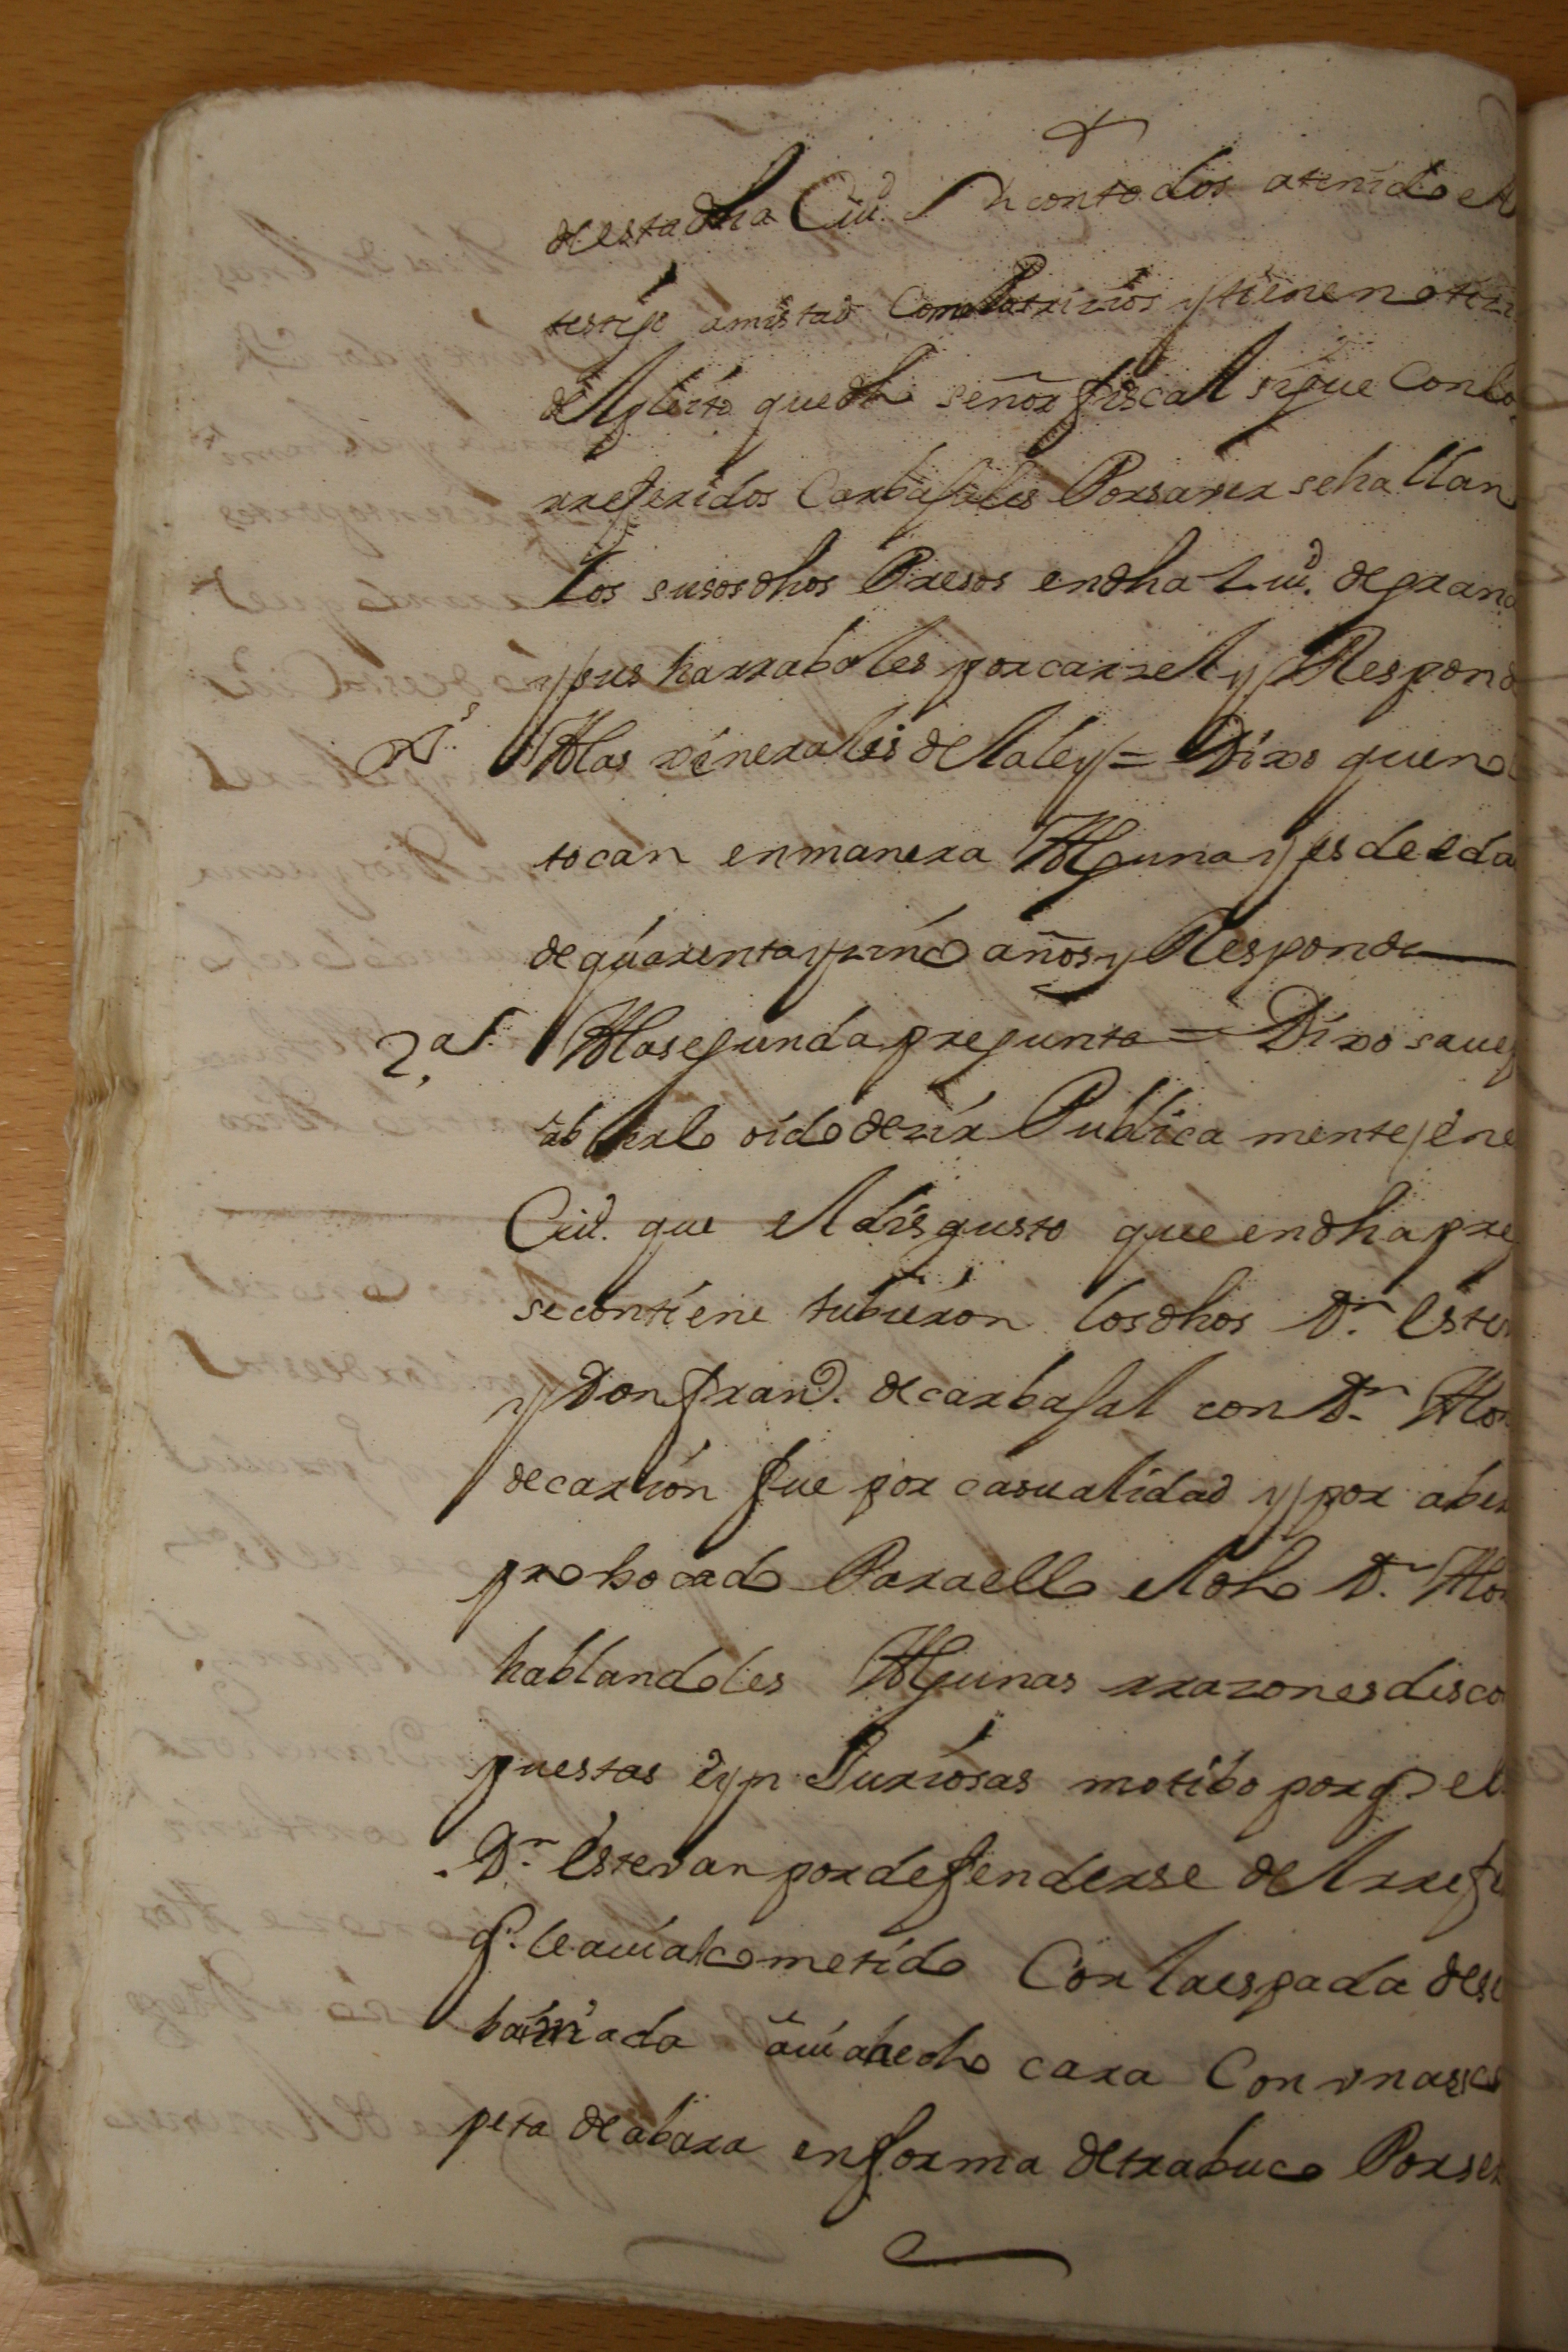 de esta dha Ciud. con todos a tenido el
testigo amistad Como Patrizios y tiene notizi
del pleito que dho señor fiscal sigue Con lo
rreferidos Carbajales Por saver se hallan
los susos dhos Presos en dha Ziud. de grana
y sus harrabales por carzel y Respond
Gs. A las xenerales de la ley = Dixo que no
tocan en manera Alguna y es de eda
de quarenta y zinco años y Responde
2.a A la segunda pregunta = Dixo save
ab herlo oido dezir Publica mente en e
Ciud. que el disgusto que en dha pre
se contiene tubieron los dhos Dn. Este
y Don franco. de carbajal con Dn. Alon
de carrion fue por casualidad y por aber
probocado Para ello el dho Dn. Alon
hablandoles Algunas rrazones disco
puestas e yn Juriosas motibo por q. el
Dn. Estevan por defenderse del rrefe
q. le avia acometido Con la espada dese
bainada avia hecho cara Con una esco
peta de a bara en forma de trabuco Por ser